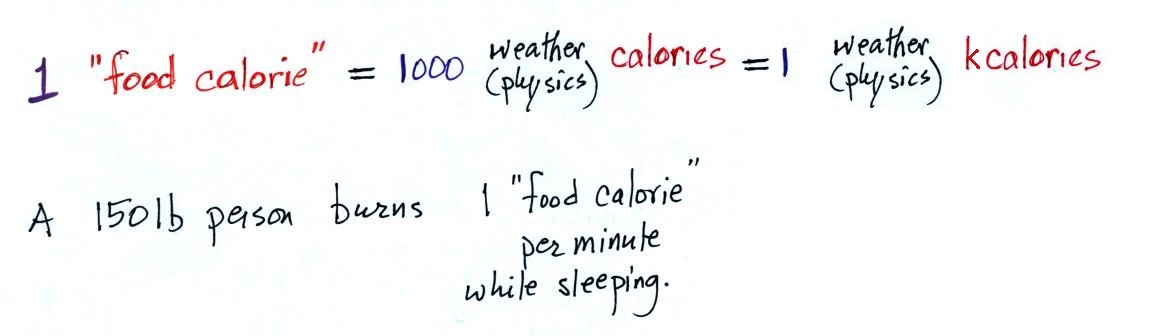 1 "food calorie" = 1000 weather (physics) calories = 1 weather (physics) kcalories
A 150lb person burns 1 "food calorie"
per minute
while sleeping.